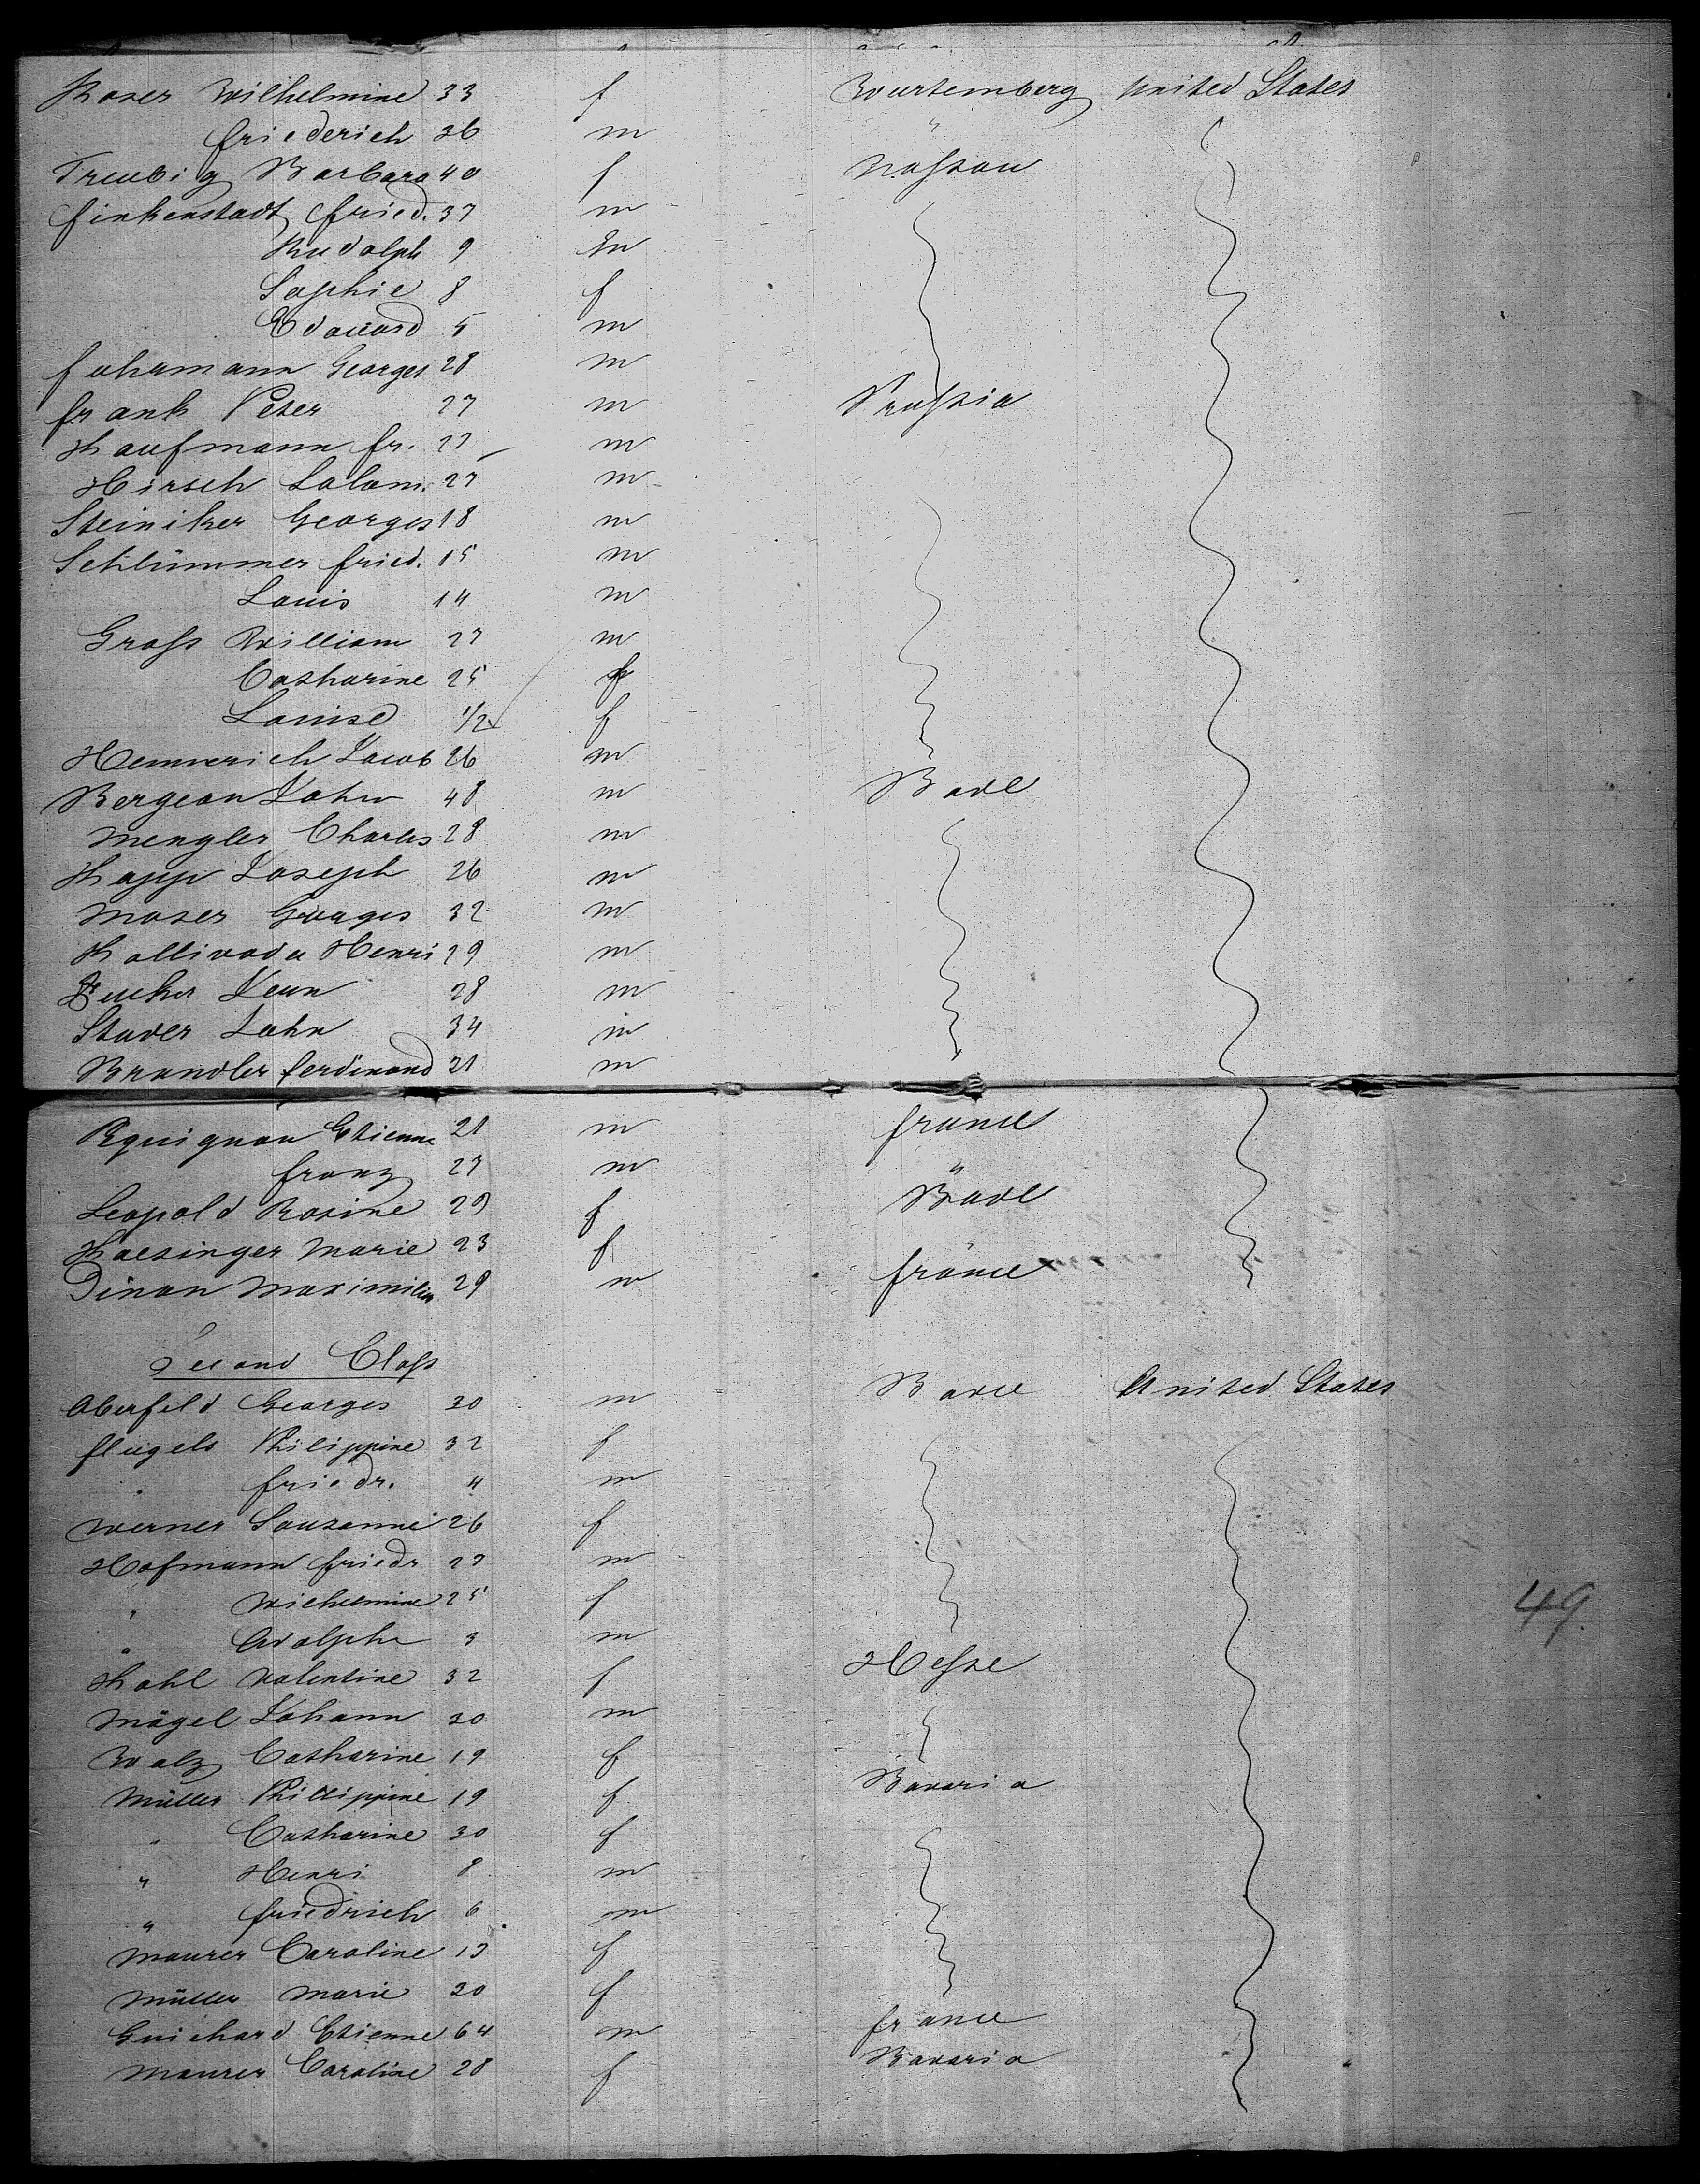 Roser Wilhelmine 33 f Wurtemberg United States
Friederich 36 m "
Treubig Barbara 40 f Nassau
Finkenstadt Fried. 37 m
Rudolph 9 m
Sophie 8 f
Edouard 5 m
Fuhrmann Georges 28 m
Frank Peter 27 m Prussia
Kaufmann Fr. 27 m
Hirsch Salom. 27 m
Steiniker Georges 18 m
Schlümmer Fried. 15 m
Louis 14 m
Gross William 27 m
Catharine 25 f
Louise 1/2 f
Hemmerich Jacob 26 m
Bergeon John 48 m Bade
Mengler Charles 28 m
Kapp Joseph 26 m
Moser Georges 32 m
Kallivoda Henri 29 m
Jean 28 m
Stader John 34 m
Brandler Ferdinand 21 m
Pequignon Etienne 21 m France
Franz 27 m "
Leopold Rosine 29 f Bade
Kaesinger Marie 23 f
Dinon Maximilien 29 m France
Second Class
Oberfeld Georges 30 m Bade United States
Flugels Philippine 32 f
Friedr. 4 m
Werner Souzanne 26 f
Hofmann Friedr 27 m
" Wilhelmine 25 f
" Adolphe 3 m
Kahl Valentine 32 f Hesse
Mägel Johann 30 m
Walz Catharine 19 f
Müller Phillippine 19 f Bavaria
" Catharine 30 f
" Henri 8 m
" Friedrich 6 m
Maurer Caroline 19 f
Müller Marie 20 f
Guichard Etienne 64 m France
Maurer Caroline 28 f Bavaria
49.